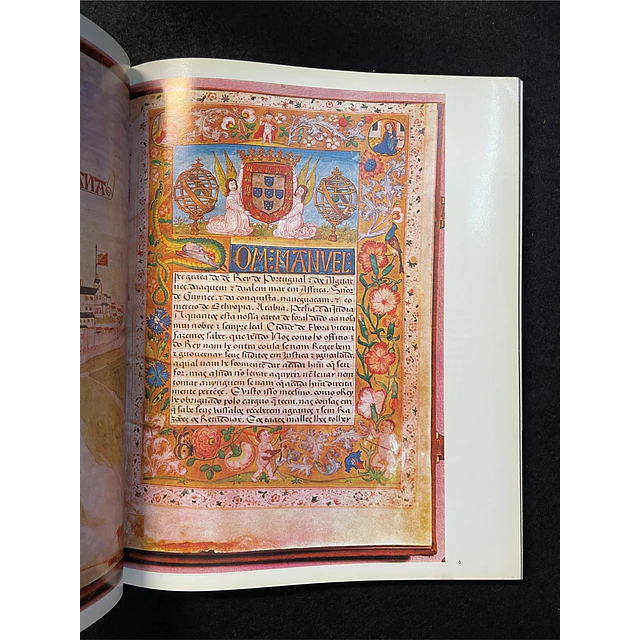 OM: MANVEL
per graça de ds Rey de Portugual ⁊ dos Algar
ues, daquem ⁊ dualem mar em Affrica. Sñor
de Guynee. ⁊ da conquista. naueguacam. ⁊ co
mercio de Ethyopia. Arabia. Persia. ⁊ da India
Aquantos esta nossa carta de foral dado aa nosa
muj nobre ⁊ sempre leal Cidade de Evora virem
fazemos saber. que vendo Nos como ho officio
do Rey nam he outra cousa se nam Reger bem
⁊ gouernar seus subditos em Justiça ⁊ ygualdade
qual nam he soomente dar acada huũ o que seu
for. mas ajnda nõ leixar aquyrir. nẽ leuar nem
tomar anynguem se nam o que acada huũ direita
mente pertẽçe. E visto isso mesmo. como o Rey
he obriguado polo carguo que teem. nas cousas em
que sabe seus vasalos receberem agrauos ⁊ sem Ra
zoões os Remediar.